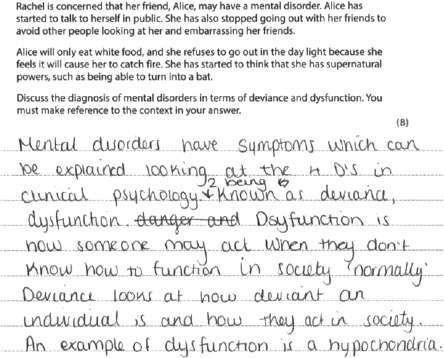 Rachel is concerned that her friend, Alice, may have a mental disorder. Alice has
started to talk to herself in public. She has also stopped going out with her friends to
avoid other people looking at her and embarrassing her friends.
Alice will only eat white food, and she refuses to go out in the day light because she
feels it will cause her to catch fire. She has started to think that she has supernatural
powers, such as being able to turn into a bat.
Discuss the diagnosis of mental disorders in terms of deviance and dysfunction. You
must make reference to the context in your answer.
(8)
Mental disorders have symptoms which can
be explained looking at the 4 D's in
clinical psychology 2 being known as deviance,
dysfunction. danger and Dsyfunction is
how someone may act when they don't
know how to function in society 'normally'
Deviance looks at how deviant an
individual is and how they act in society.
An example of dysfunction is a hypochondria.